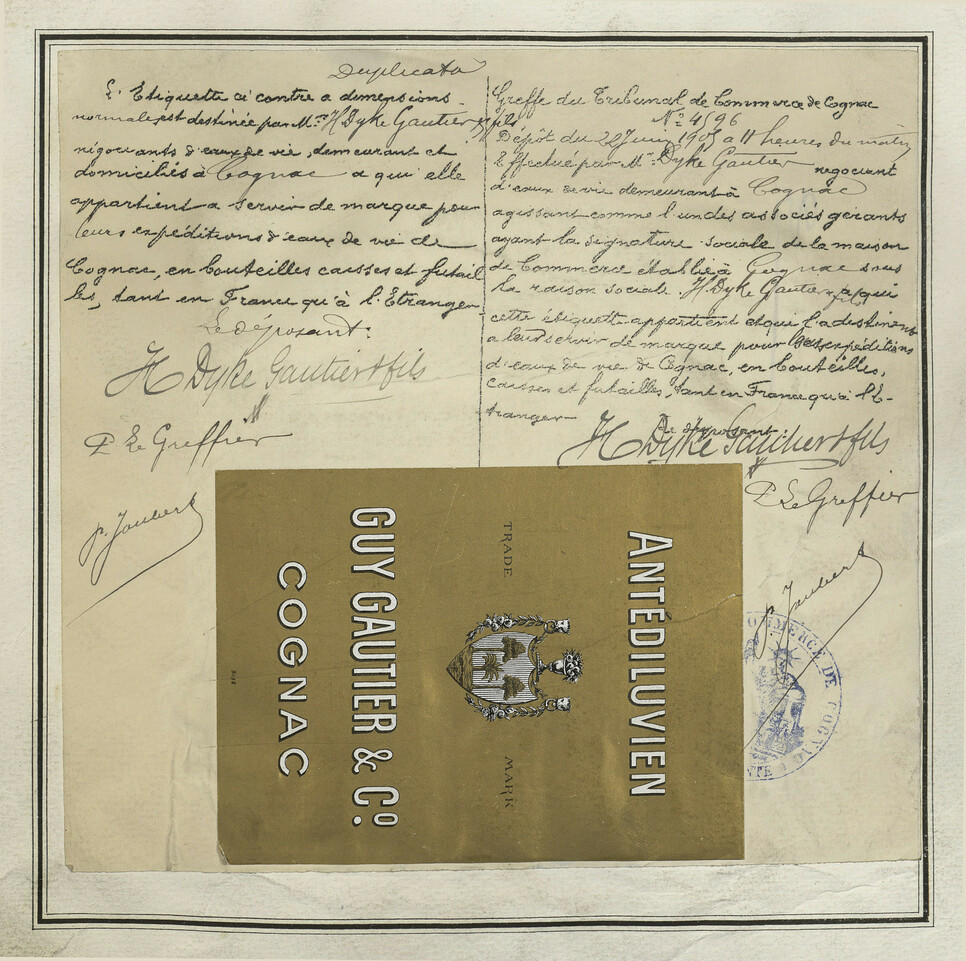 Duplicata
L'Etiquette ci contre a dimensions
normales est destinée par Mrs H Dyke Gautier et fils
négociants d'eaux de vie, demeurant et
domiciliés à Cognac a qui elle
appartient a servir de marque pour
leurs expéditions d'eaux de vie de
Cognac, en bouteilles caisses et futail
les, tant en France qu'à l'Etranger
Le déposant:
H Dyke Gautier & fils
P Le Greffier
P. Joubert
Greffe du Tribunal de Commerce de Cognac
No 4596
Dépôt du 22 Juin 1905 a 11 heures du matin
Effectué par M. Dyke Gautier négociant
d'eaux de vie demeurant à Cognac
agissant comme l'un des associés gérants
ayant la signature sociale de la maison
de Commerce établie à Cognac sous
la raison sociale H. Dyke Gautier & fils a qui
cette étiquette appartient et qui l'a destinent
a leur servir de marque pour les expéditions
d'eaux de vie de Cognac, en bouteilles,
caisses et futailles, tant en France qu'à l'E-
tranger
Le déposant
H Dyke Gautier & fils
P Le Greffier
P. Joubert
ANTÉDILUVIEN
TRADE MARK
GUY GAUTIER & Co.
COGNAC
COMMERCE DE COGNAC